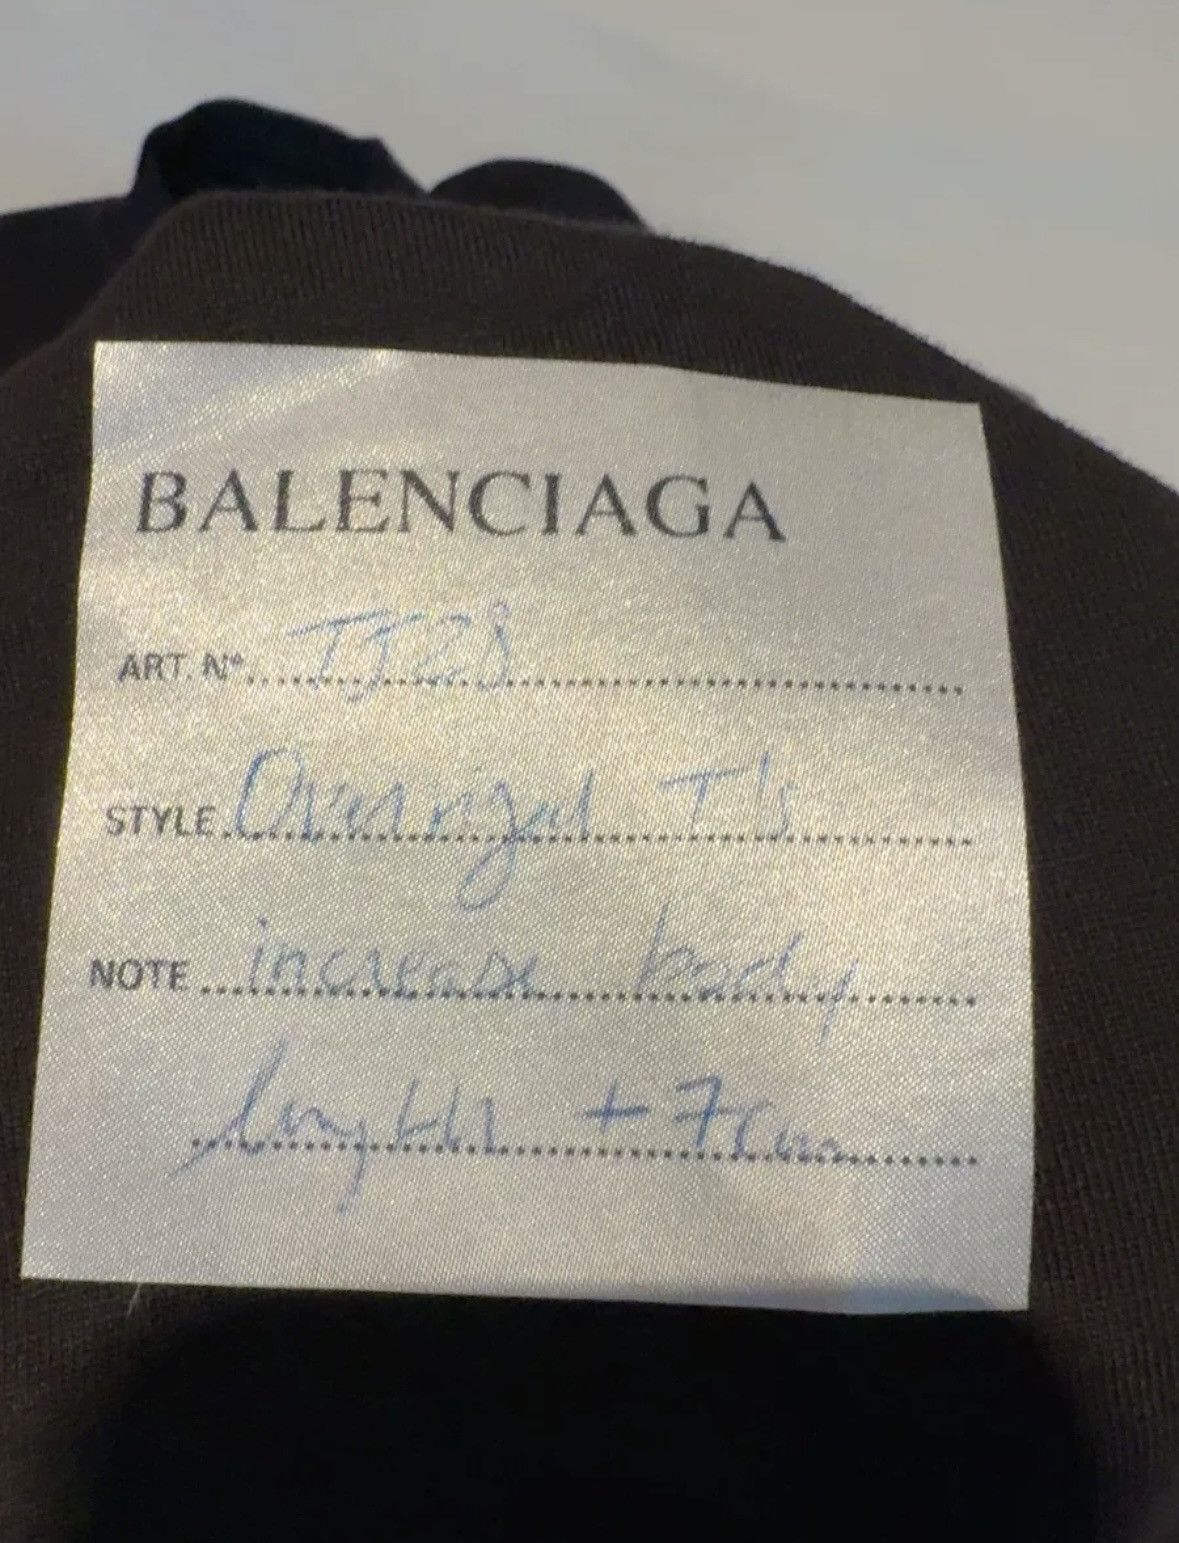 BALENCIAGA
ART. N° TJ28
STYLE Oversized T's
NOTE increase body
length +7cm